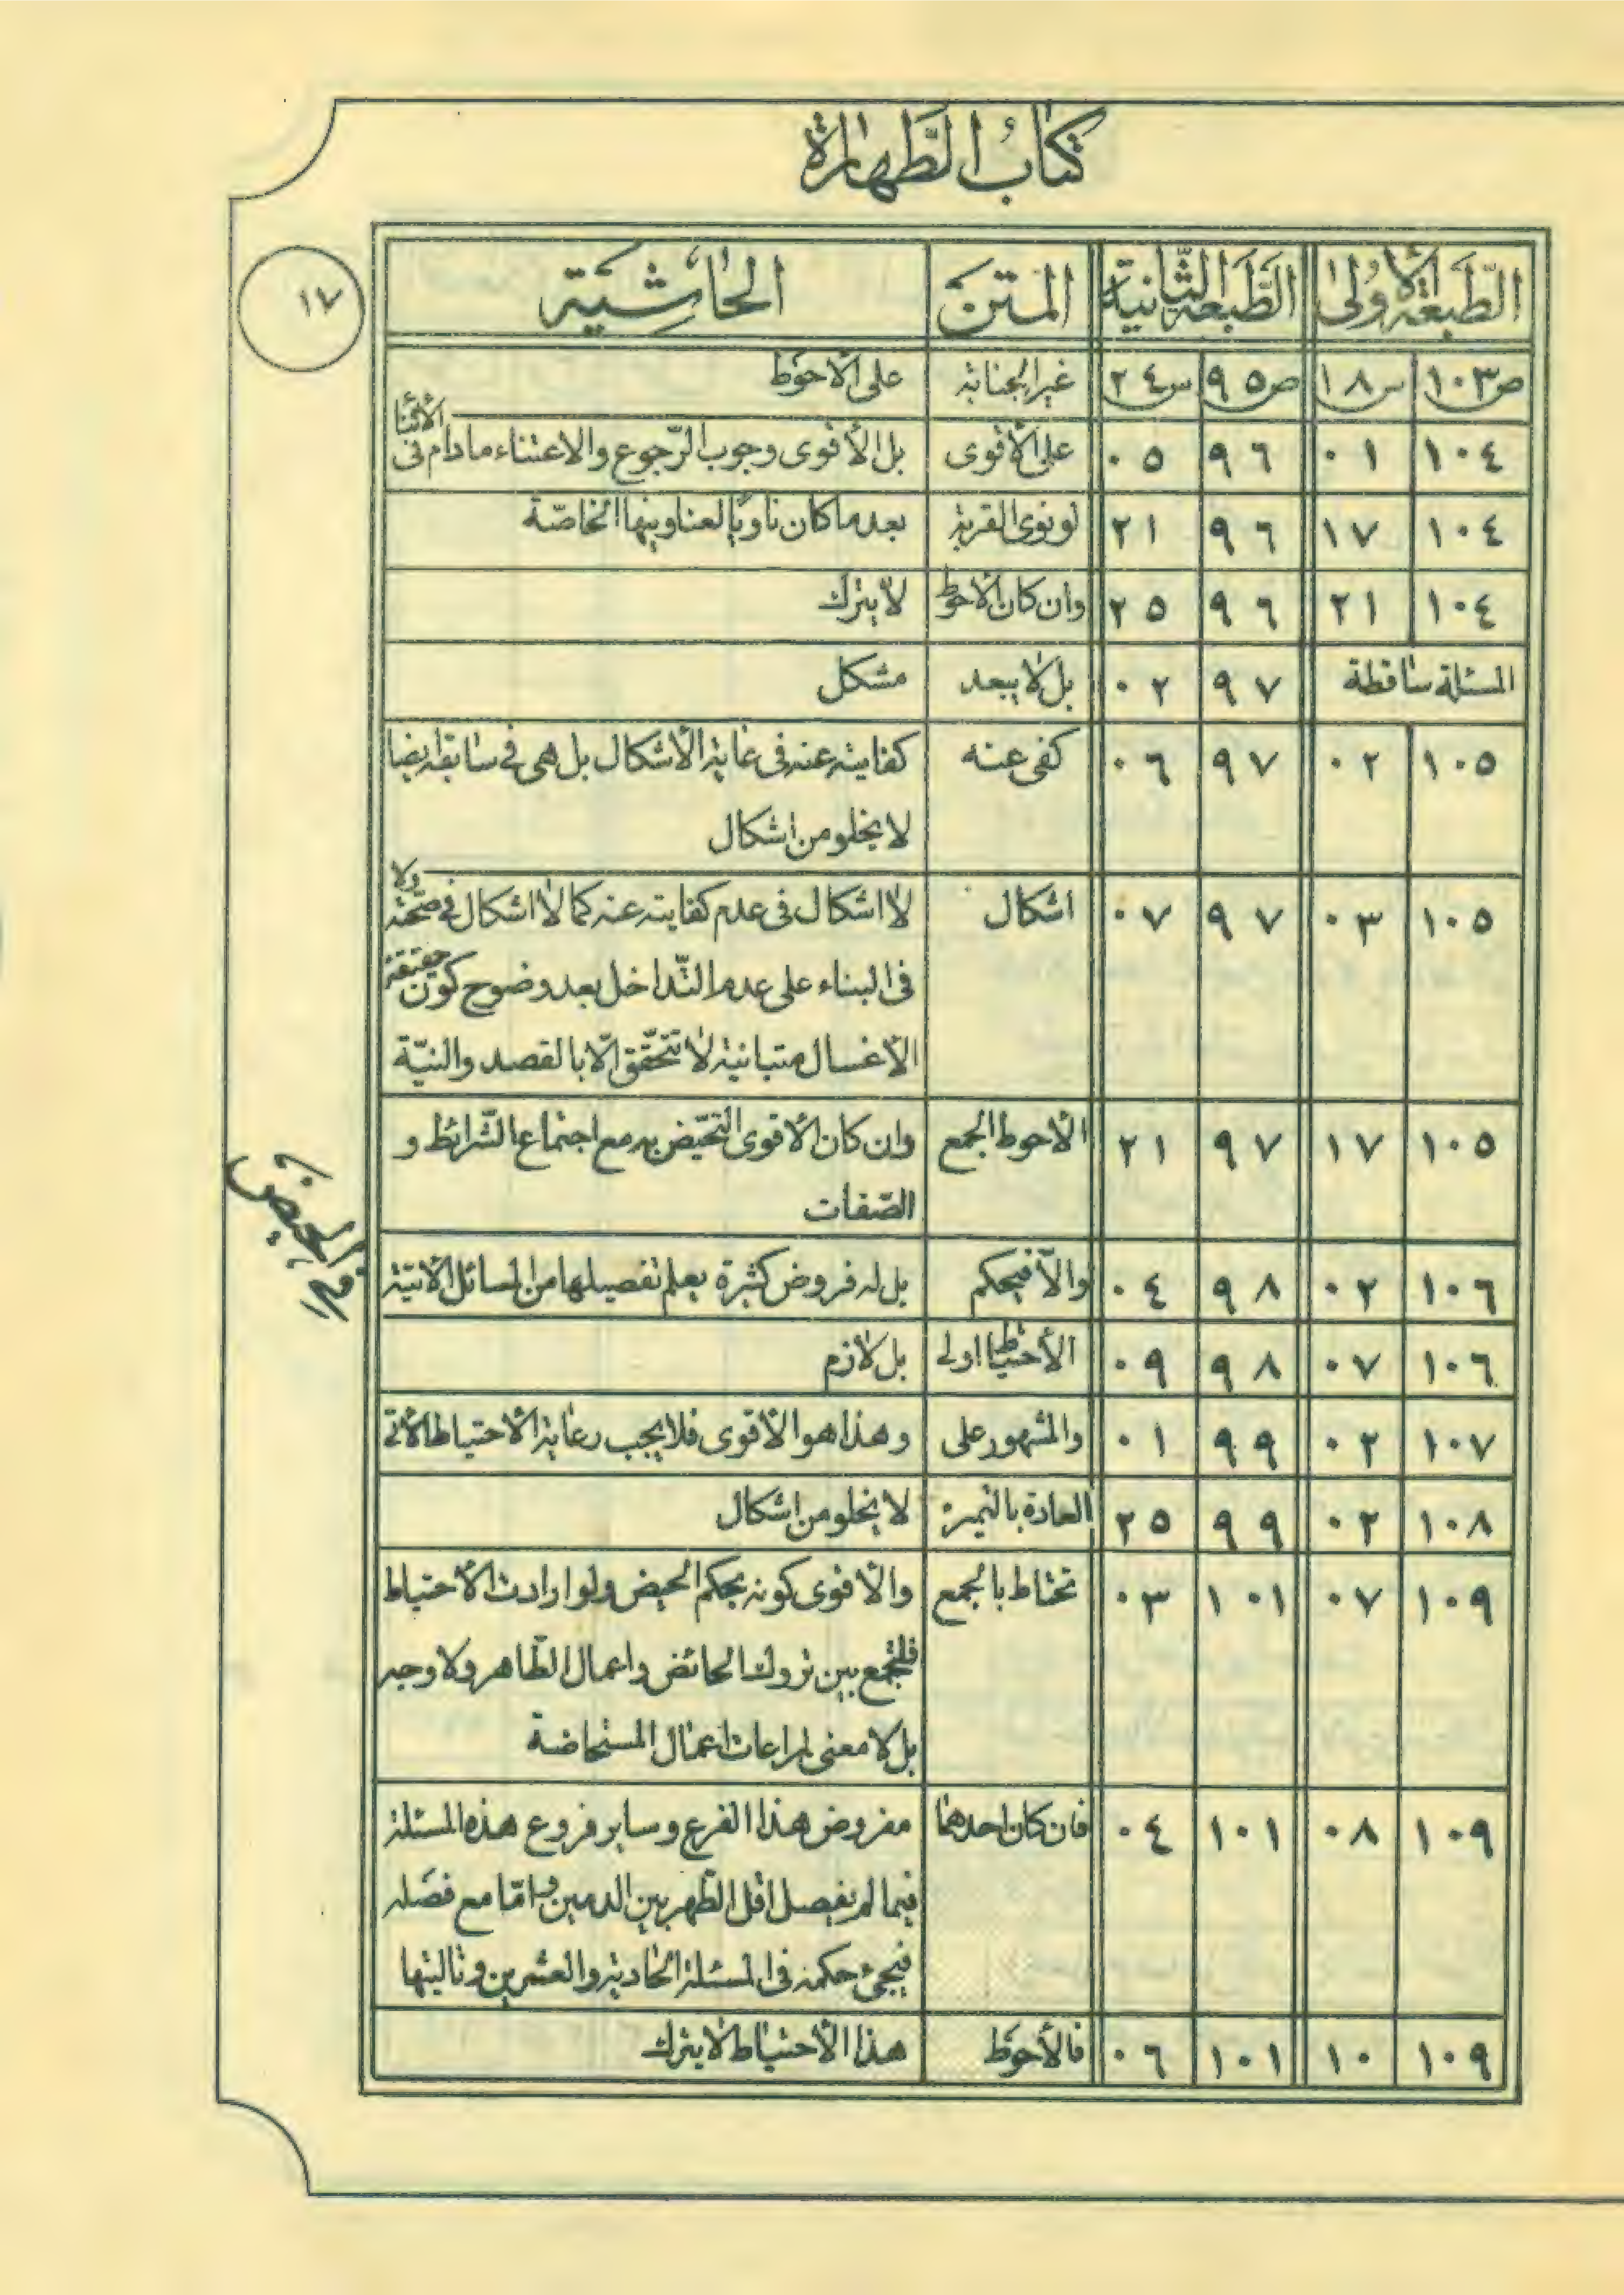 كتاب الطّهارة
١٧
الطّبعة الأولى الطّبعة الثّانية المتن الحاشية
ص١٠٣ س١٨ ص٩٥ س٢٤ غير الجنابة على الأحوط
١٠٤ ٠١ ٩٦ ٠٥ على الأقوى بل الأقوى وجوب الرّجوع والاعتناء مادام فى الأثناء
١٠٤ ١٧ ٩٦ ٢١ لو نوى القربة بعد ما كان ناوياً لعناوينها الخاصّة
١٠٤ ٢١ ٩٦ ٢٥ وان كان الأحوط لا يترك
المسئلة ساقطة ٩٧ ٠٢ بل لا يبعد مشكل
١٠٥ ٠٢ ٩٧ ٠٦ كفى عنه كفايته عنه فى غاية الأشكال بل هى في سابقه ايضا
لا يخلو من اشكال
١٠٥ ٠٣ ٩٧ ٠٧ اشكال لا اشكال فى عدم كفايته عنه كما لا اشكال في صحّته ولا
فى البناء على عدم التّداخل بعد وضوح كون حقيقة
الأغسال متباينة لا تتحقّق الّا بالقصد والنيّة
١٠٥ ١٧ ٩٧ ٢١ الأحوط الجمع وان كان الأقوى التحيّض به مع اجتماع الشّرائط و
الصّفات
فى الحيض
١٠٦ ٠٢ ٩٨ ٠٤ والّا فيحكم بل له فروض كثيرة يعلم تفصيلها من المسائل الأتية
١٠٦ ٠٧ ٩٨ ٠٩ الأحتياط اولى بل لازم
١٠٧ ٠٢ ٩٩ ٠١ والمشهور على وهذا هو الأقوى فلا يجب رعاية الأحتياط الأتى
١٠٨ ٠٢ ٩٩ ٢٥ العادة بالتميز لا يخلو من اشكال
١٠٩ ٠٧ ١٠١ ٠٣ تحتاط بالجمع والأقوى كونه بحكم الحيض ولو ارادت الأحتياط
فلتجمع بين تروك الحائض واعمال الطّاهر ولا وجه
بل لا معنى لمراعات اعمال المستحاضة
١٠٩ ٠٨ ١٠١ ٠٤ فان كان احدهما مفروض هذا الفرع وساير فروع هذه المسئلة
فيما لم يفصل اقل الطّهر بين الدمين وامّا مع فصله
فيجىء حكمه فى المسئلة الحادية والعشرين وتاليتها
١٠٩ ١٠ ١٠١ ٠٦ فالأحوط هذا الأحتياط لا يترك